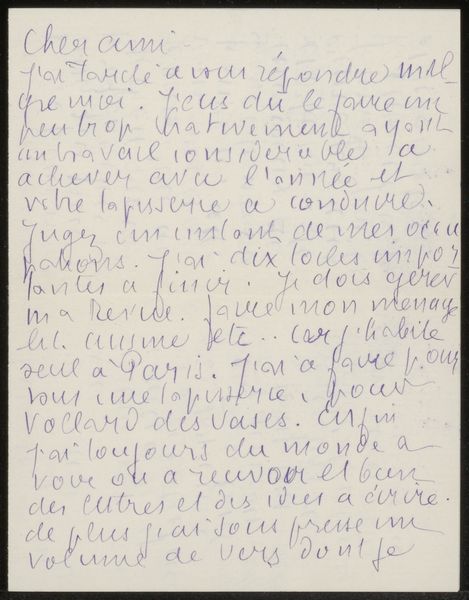 Cher ami
J'ai tardé a vous répondre mal
gre moi. J'eus du le faire un
peu trop hativement ayant
un travail considerable a
achever avec l'année et
votre tapisserie a conduire.
Jugez un instant de mes occu
pations. J'ai dix toiles impor
tantes a finir. Je dois gérer
ma Revue. faire mon menage
lit. cuisine etc.. car j'habite
seul à Paris. J'ai a faire pour
vous une tapisserie, pour
Vollard des vases. Enfin
j'ai toujours du monde a
voir ou a recevoir et bien
des lettres et des idées a écrire.
de plus j'ai sous presse un
volume de vers dont je